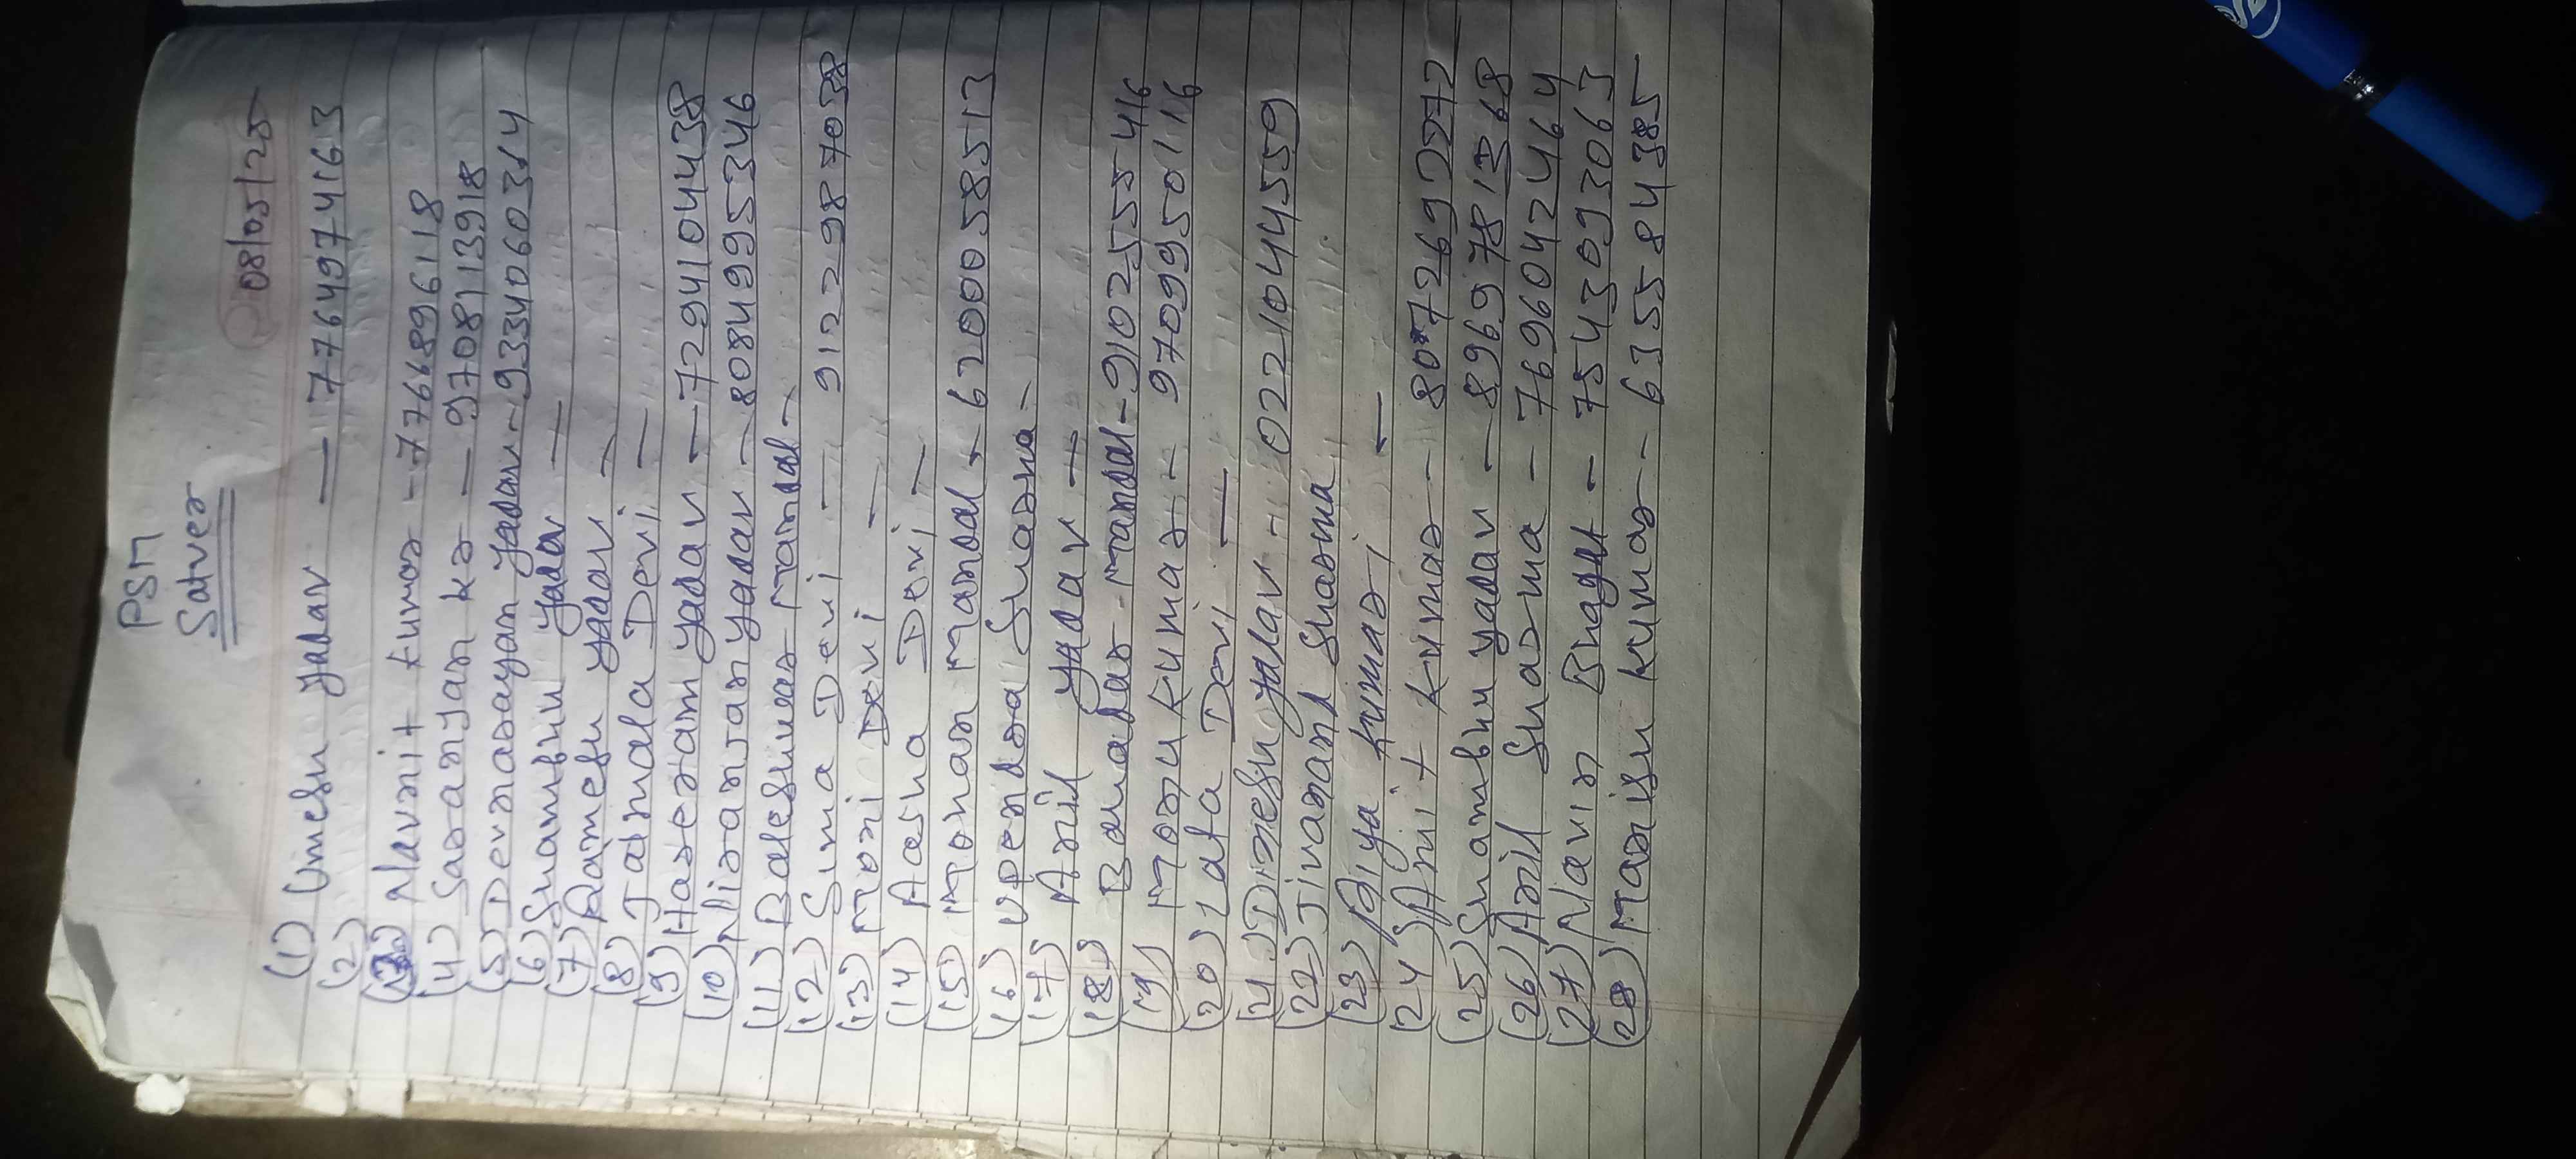 PSM
Satver
08/05/25
(1) Umesh Yadav — 7764974163
(2)
(3) Navnit Kumar - 7766896118
(4) Saranjan kr — 9708113918
(5) Devnarayan Yadav - 9334060314
(6) Shambhu Yadav —
(7) Ramesh Yadav —
(8) Jaimala Devi —
(9) Hareram Yadav — 7294104438
(10) Niranjan Yadav — 8084995346
(11) Baleshwar Mandal -
(12) Sima Devi — 9122987038
(13) Moni Devi —
(14) Asha Devi —
(15) Mohan Mandal - 6200058513
(16) Upendra Sharma -
(17) Anil Yadav —
(18) Bahadar Mandal - 9102555416
(19) Monu Kumar - 9709950116
(20) Lata Devi —
(21) Dinesh Yadav - 02210445559
(22) Jivanand Sharma
(23) Piya Kumari —
(24) Anit Kumar -
(25) Shambhu Yadav - 8969781368
(26) Anil Sharma - 7696042464
(27) Navin Bhagat - 7543093063
(28) Manish Kumar - 635584385